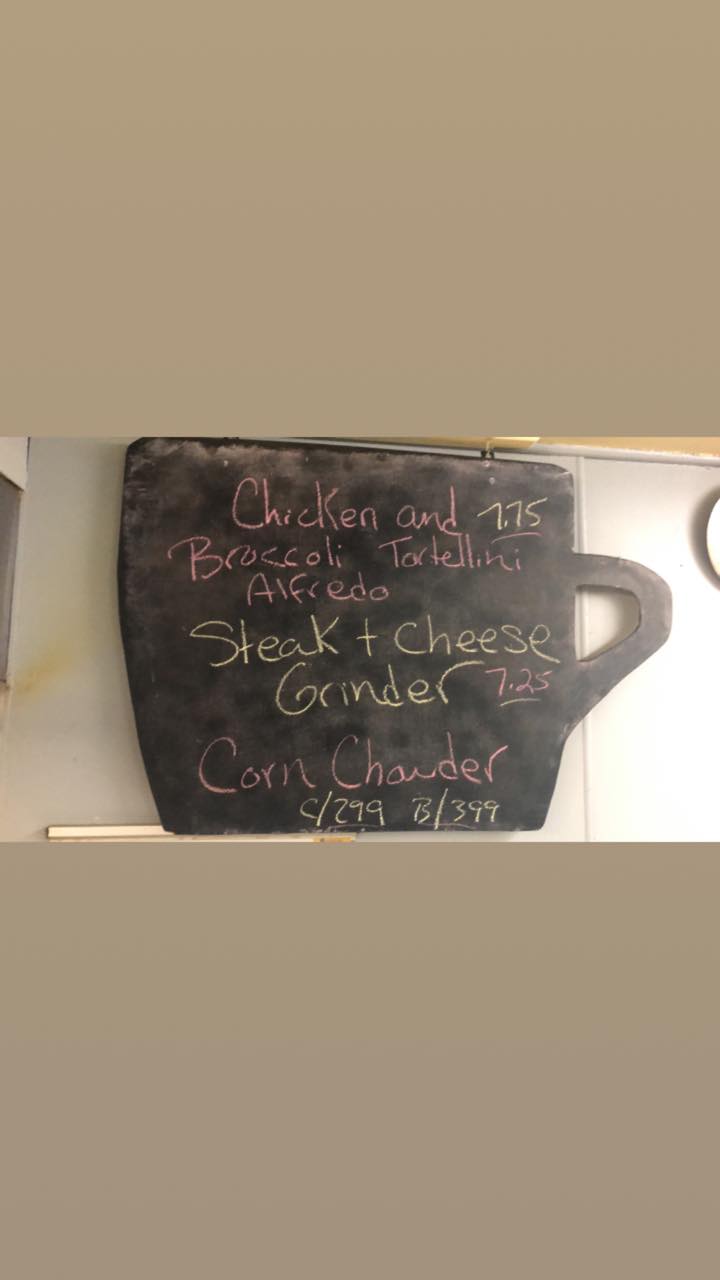 Chicken and 7.75
Broccoli Tortellini
Alfredo
Steak + Cheese
Grinder 7.25
Corn Chowder
C/299 B/399